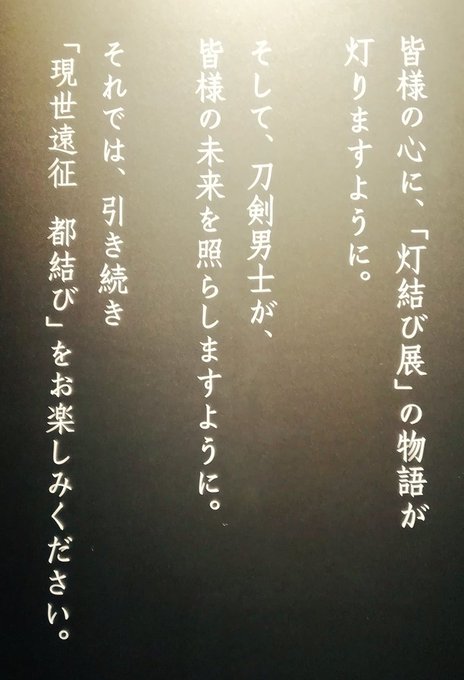 皆様の心に、「灯結び展」の物語が
灯りますように。
そして、刀剣男士が、
皆様の未来を照らしますように。
それでは、引き続き
「現世遠征　都結び」をお楽しみください。